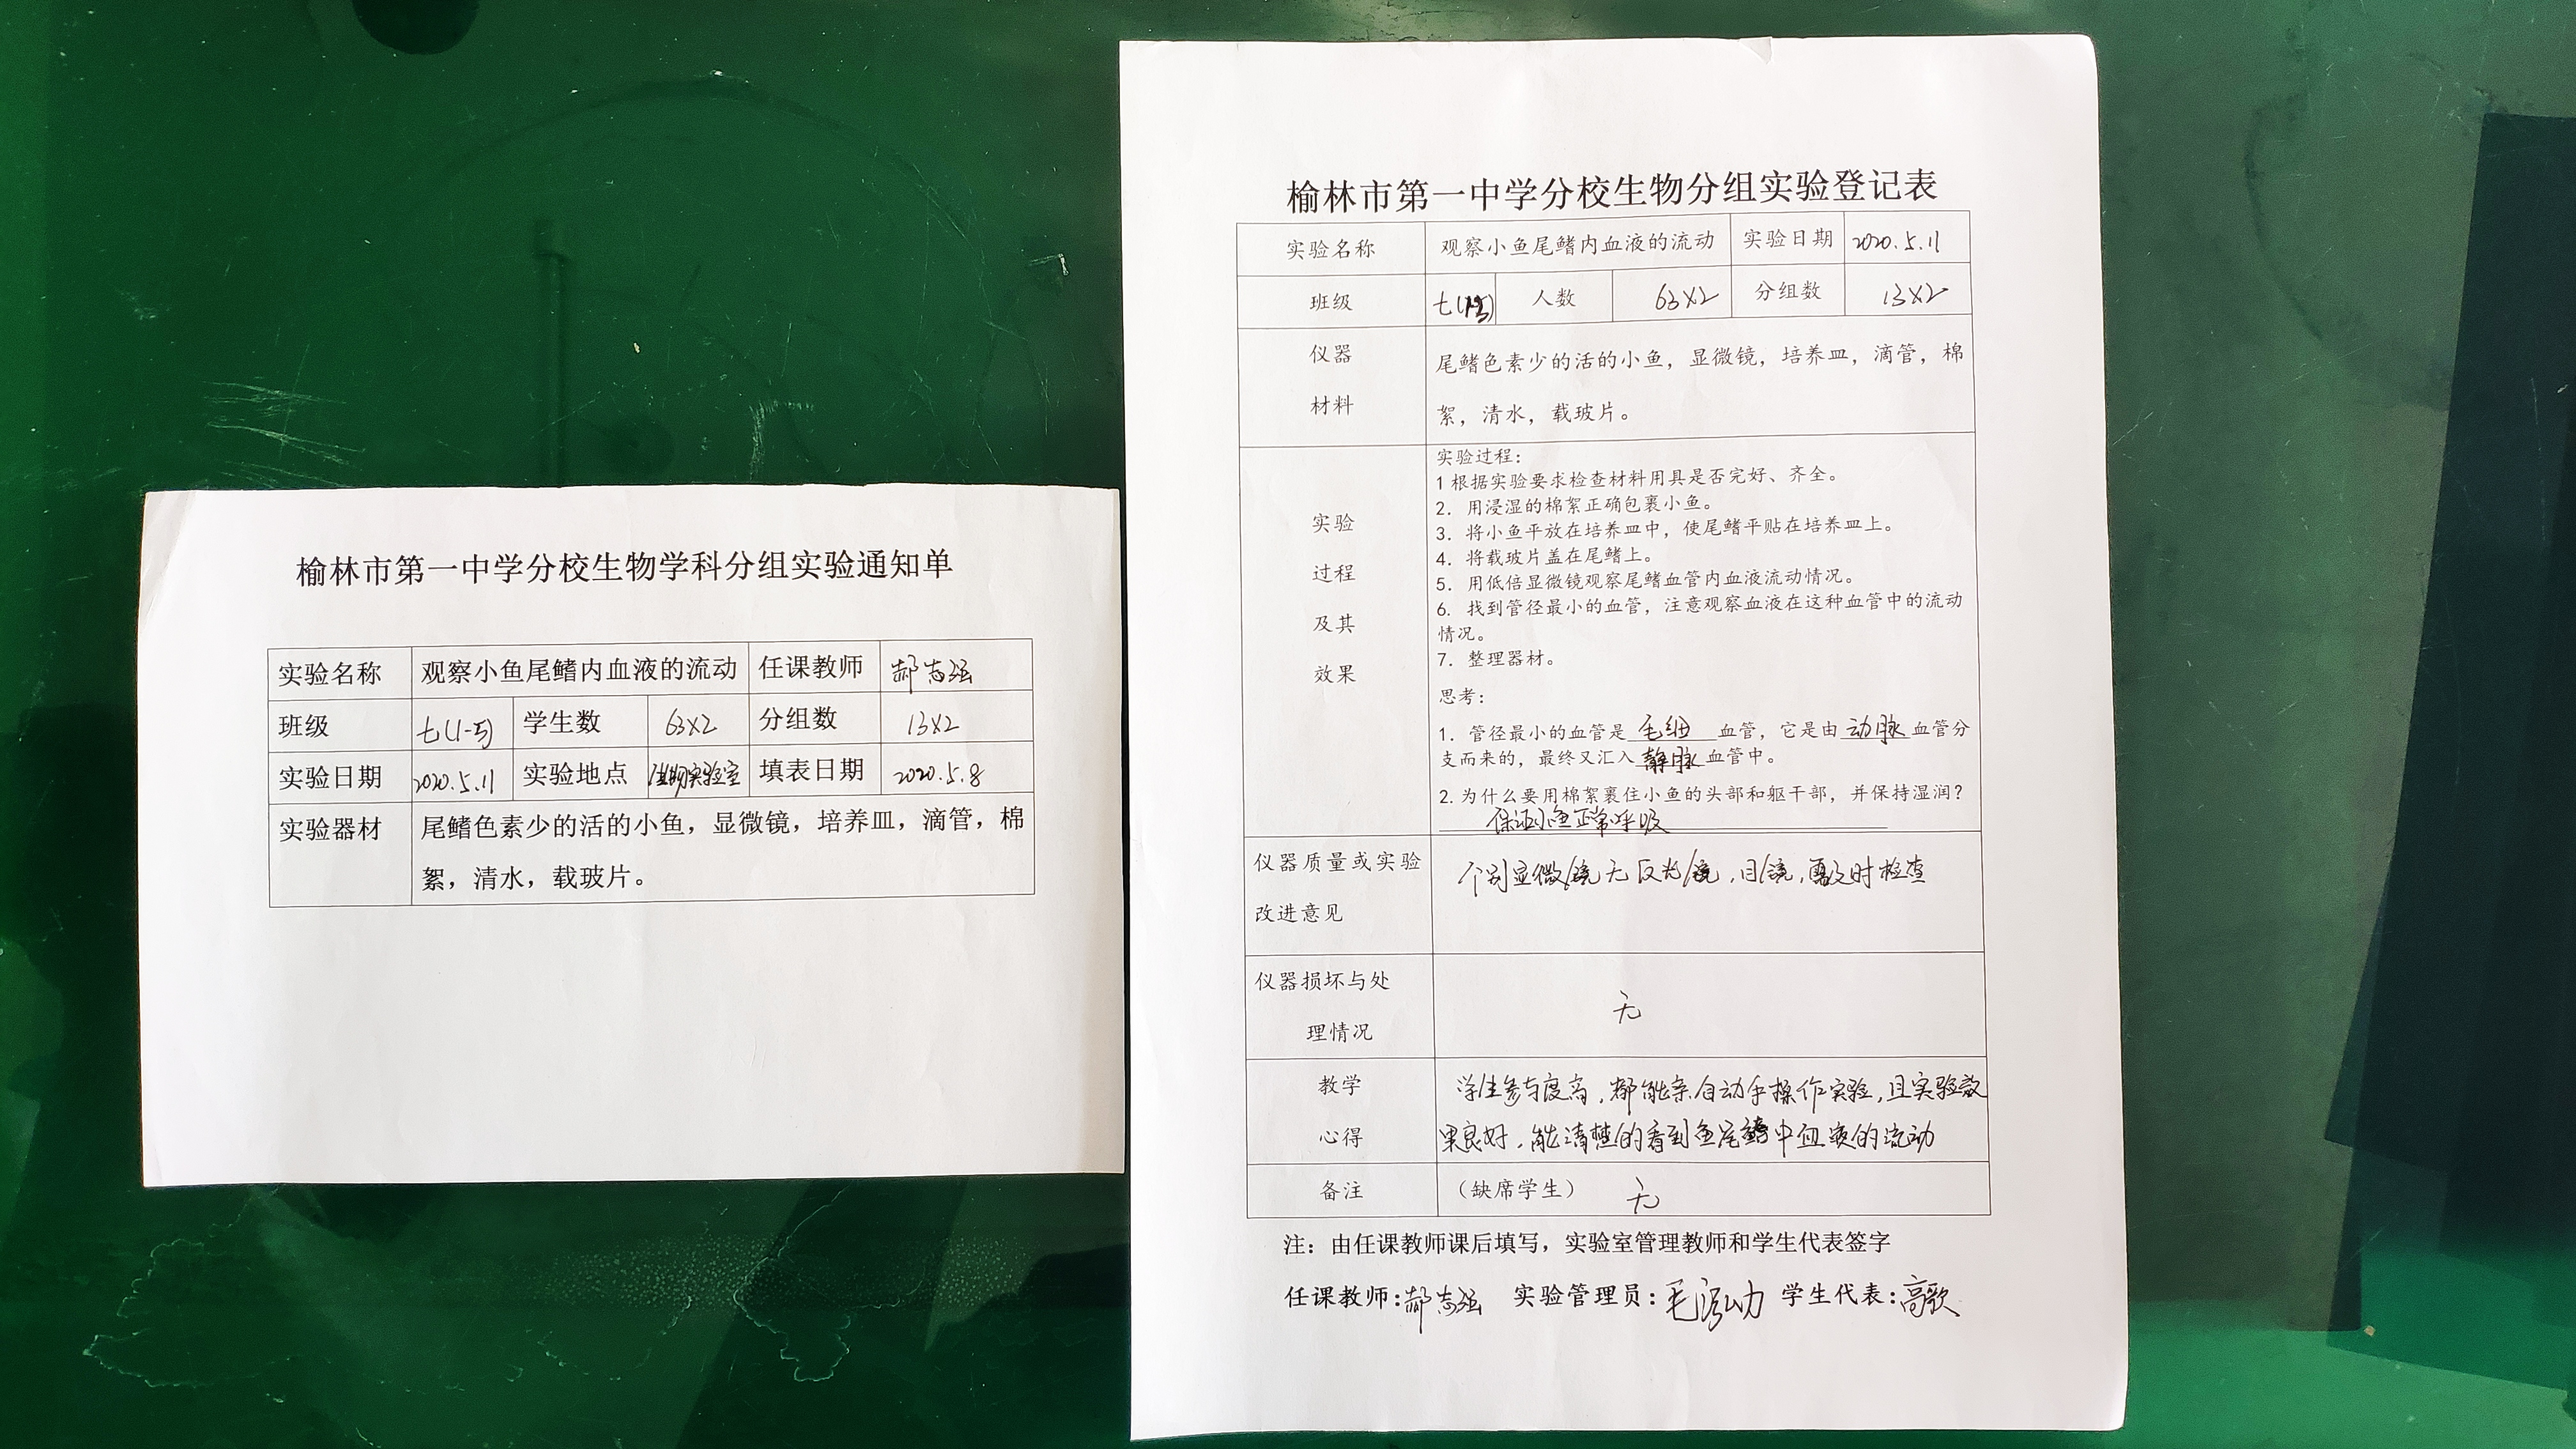 榆林市第一中学分校生物学科分组实验通知单
实验名称 观察小鱼尾鳍内血液的流动 任课教师 郝志强
班级 七(1-5) 学生数 63×2 分组数 13×2
实验日期 2020.5.11 实验地点 生物实验室 填表日期 2020.5.8
实验器材 尾鳍色素少的活的小鱼，显微镜，培养皿，滴管，棉
絮，清水，载玻片。
榆林市第一中学分校生物分组实验登记表
实验名称 观察小鱼尾鳍内血液的流动 实验日期 2020.5.11
班级 七 人数 63×2 分组数 13×2
仪器
材料
尾鳍色素少的活的小鱼，显微镜，培养皿，滴管，棉
絮，清水，载玻片。
实验
过程
及其
效果
实验过程：
1 根据实验要求检查材料用具是否完好、齐全。
2. 用浸湿的棉絮正确包裹小鱼。
3. 将小鱼平放在培养皿中，使尾鳍平贴在培养皿上。
4. 将载玻片盖在尾鳍上。
5. 用低倍显微镜观察尾鳍血管内血液流动情况。
6. 找到管径最小的血管，注意观察血液在这种血管中的流动
情况。
7. 整理器材。
思考：
1. 管径最小的血管是 毛细 血管，它是由 动脉 血管分
支而来的，最终又汇入 静脉 血管中。
2.为什么要用棉絮裹住小鱼的头部和躯干部，并保持湿润？
保证小鱼正常呼吸
仪器质量或实验
改进意见
个别显微镜无反光镜，目镜，需及时检查
仪器损坏与处
理情况
无
教学
心得
学生参与度高，都能亲自动手操作实验，且实验效
果良好，能清楚的看到鱼尾鳍中血液的流动
备注 （缺席学生） 无
注：由任课教师课后填写，实验室管理教师和学生代表签字
任课教师:郝志强 实验管理员:毛 学生代表:高歌